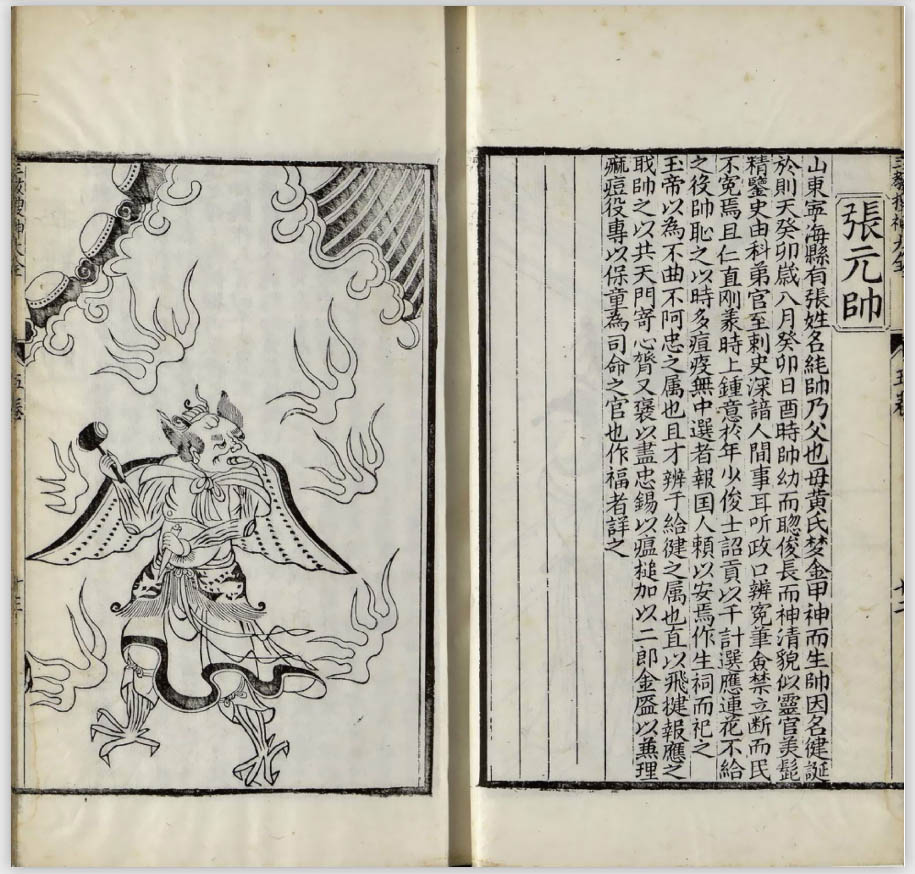 張元帥
山東寧海縣有張姓名純帥乃父也毋黄氏梦金甲神而生帥因名健誕
於則天癸卯歲八月癸卯日酉時帥幼而聰俊長而神清貌似靈官美髭
精鑒史由科弟官至刺史深諳人間事耳听政口辨寃筆僉禁立断而民
不寃焉且仁直刚義時上鍾意於年少俊士詔貢以千計選應連花不給
之後帥恥之以時多疽疫無中選者報囯人頼以安焉作生祠而祀之
玉帝以為不曲不阿忠之属也且才辨于給健之属也直以飛揵報應之
戢帥之以共天門寄心膂又褒以盡忠錫以瘟槌加以二郎金盔以𠔥理
痲痘役專以保童為司命之官也作福者詳之
五卷
十二
三教搜神大全
五卷
十三